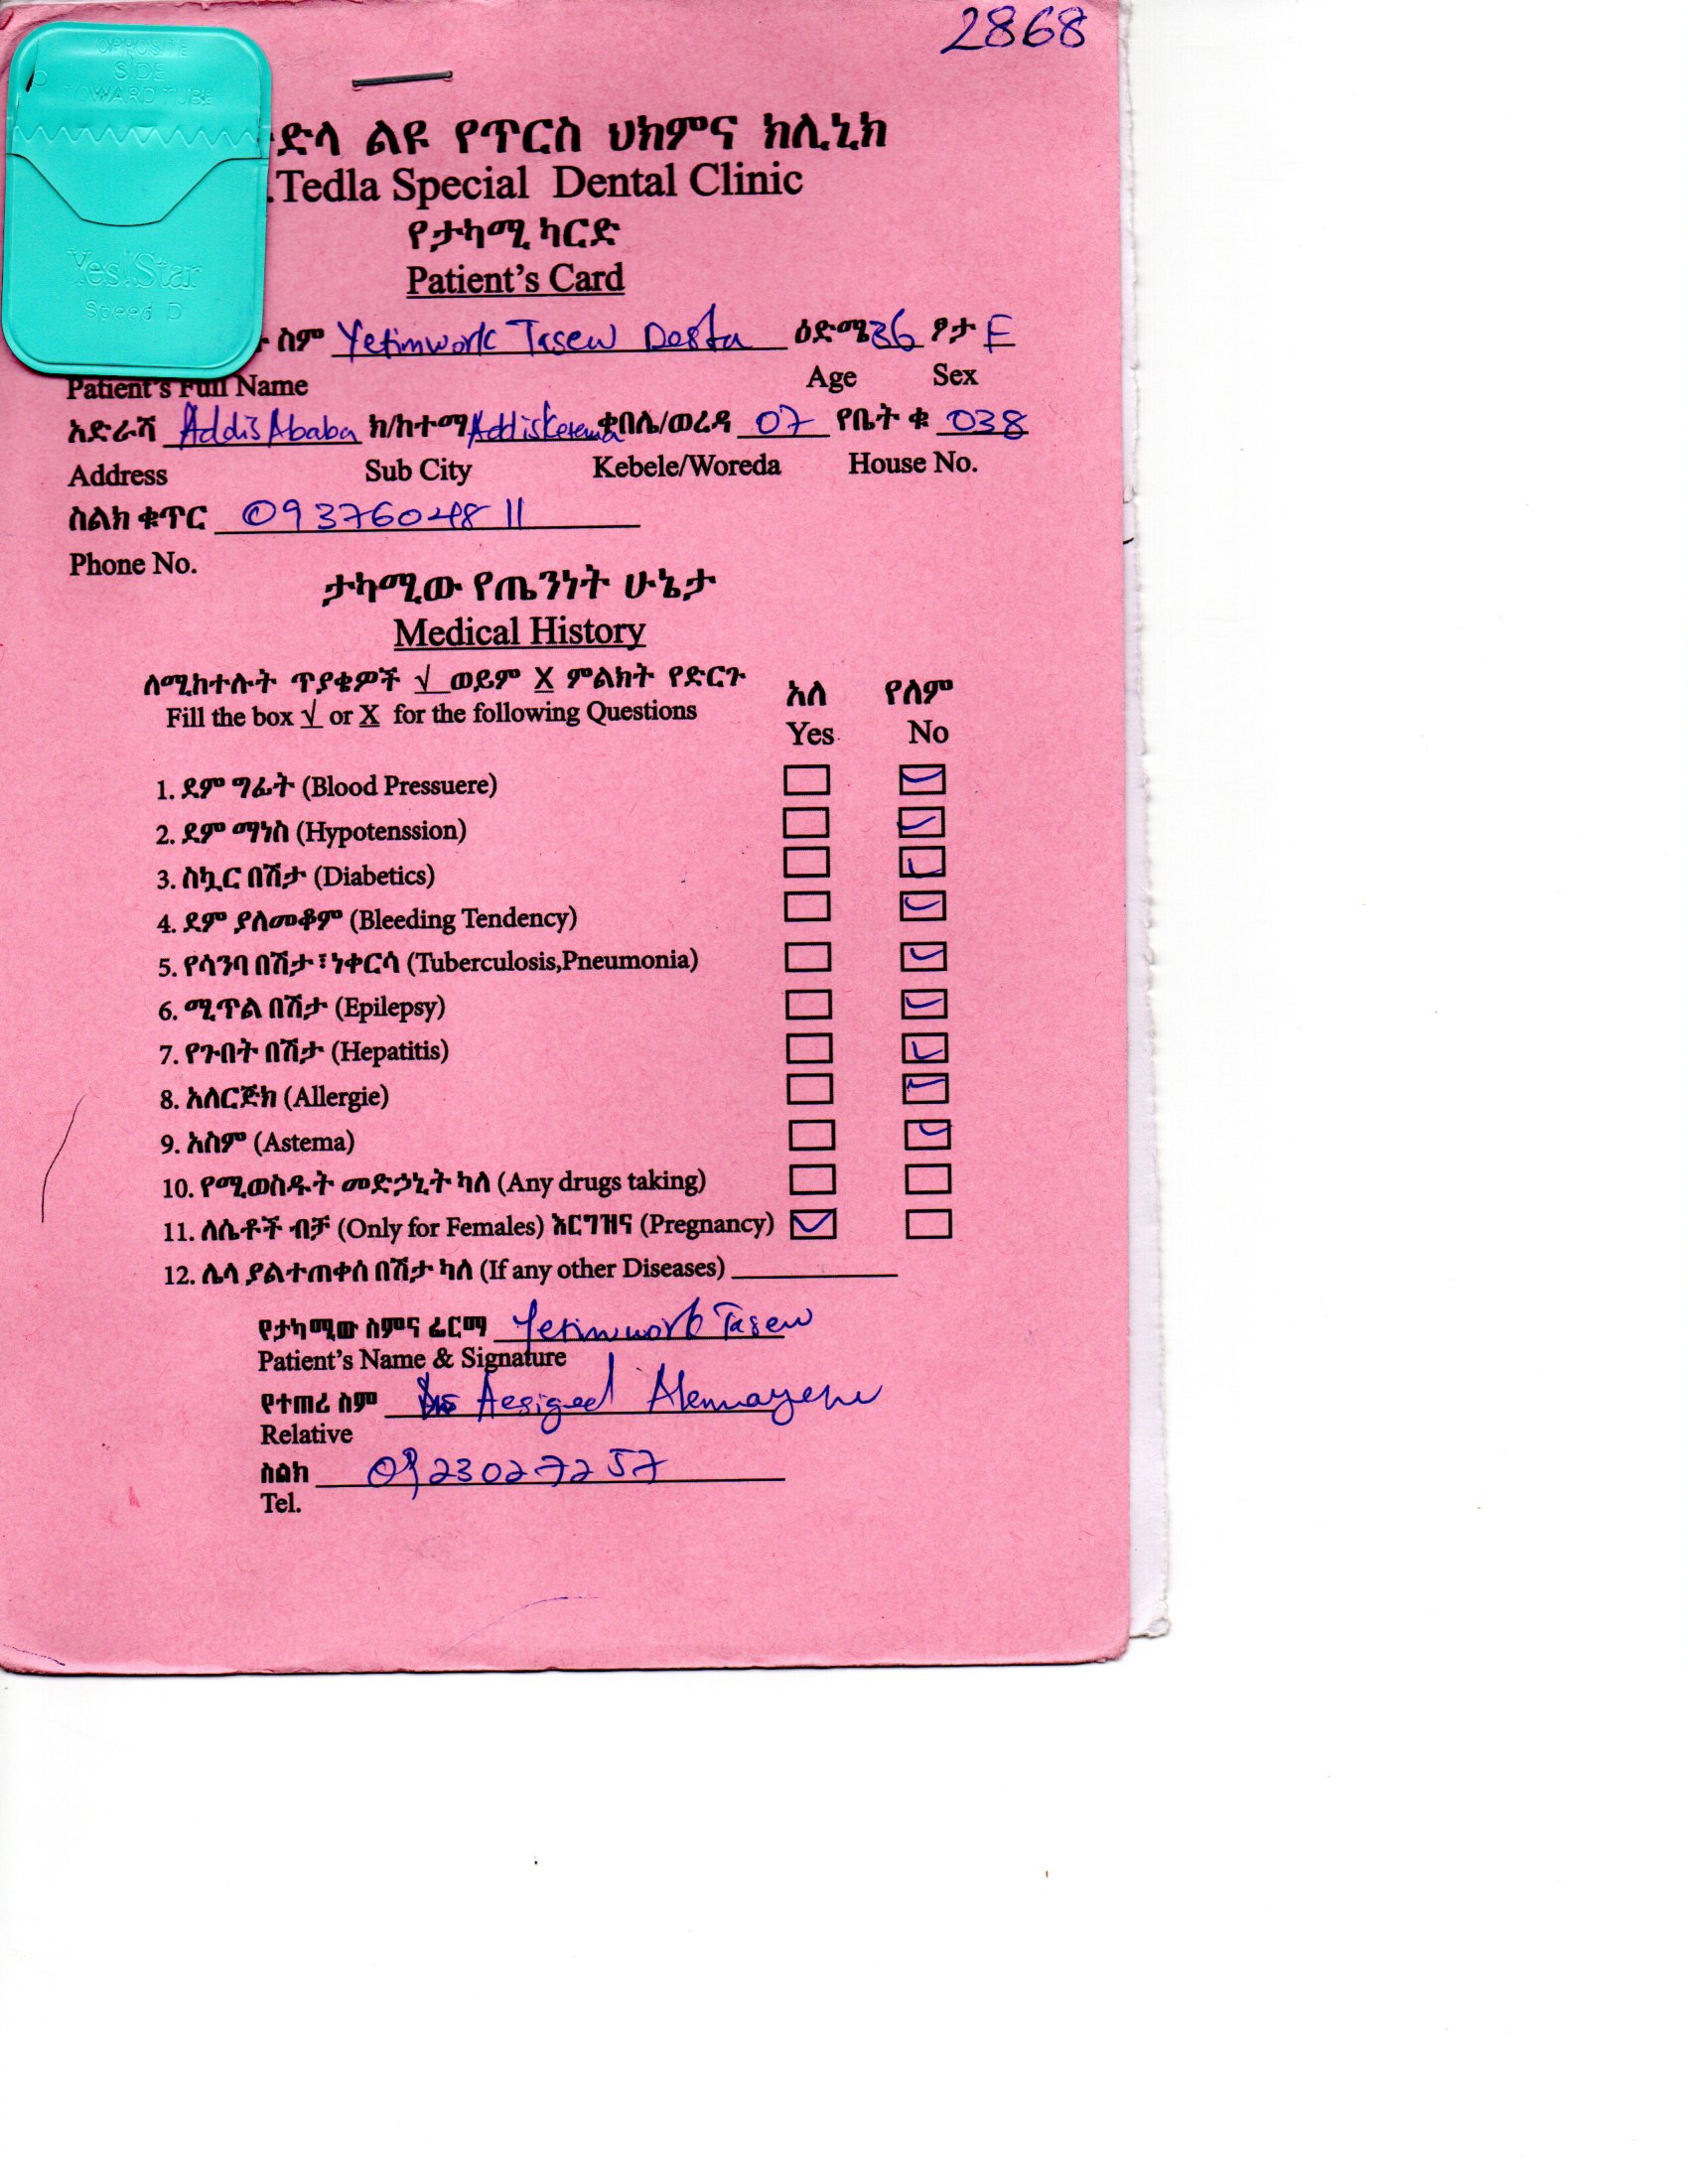 2868
OPPOSITE
SIDE
TOWARD TUBE
Yes!Star
Speed D
ድላ ልዩ የጥርስ ህክምና ክሊኒክ
.Tedla Special Dental Clinic
የታካሚ ካርድ
Patient's Card
ስም Yetimwork Tasew Desta ዕድሜ 36 ፆታ F
Patient's Full Name Age Sex
አድራሻ Addis Ababa ክ/ከተማ Addis Ketema ቀበሌ/ወረዳ 07 የቤት ቁ 038
Address Sub City Kebele/Woreda House No.
ስልክ ቁጥር 0937604811
Phone No.
ታካሚው የጤንነት ሁኔታ
Medical History
ለሚከተሉት ጥያቄዎች √ ወይም X ምልክት የድርጉ አለ የለም
Fill the box √ or X for the following Questions Yes No
1. ደም ግፊት (Blood Pressuere)
2. ደም ማነስ (Hypotenssion)
3. ስኳር በሽታ (Diabetics)
4. ደም ያለመቆም (Bleeding Tendency)
5. የሳንባ በሽታ፣ነቀርሳ (Tuberculosis,Pneumonia)
6. ሚጥል በሽታ (Epilepsy)
7. የጉበት በሽታ (Hepatitis)
8. አለርጅክ (Allergie)
9. አስም (Astema)
10. የሚወስዱት መድኃኒት ካለ (Any drugs taking)
11. ለሴቶች ብቻ (Only for Females) እርግዝና (Pregnancy)
12. ሌላ ያልተጠቀሰ በሽታ ካለ (If any other Diseases)
የታካሚው ስምና ፊርማ Yetimwork Tasew
Patient's Name & Signature
የተጠሪ ስም Alemayehu
Relative
ስልክ 0923027257
Tel.